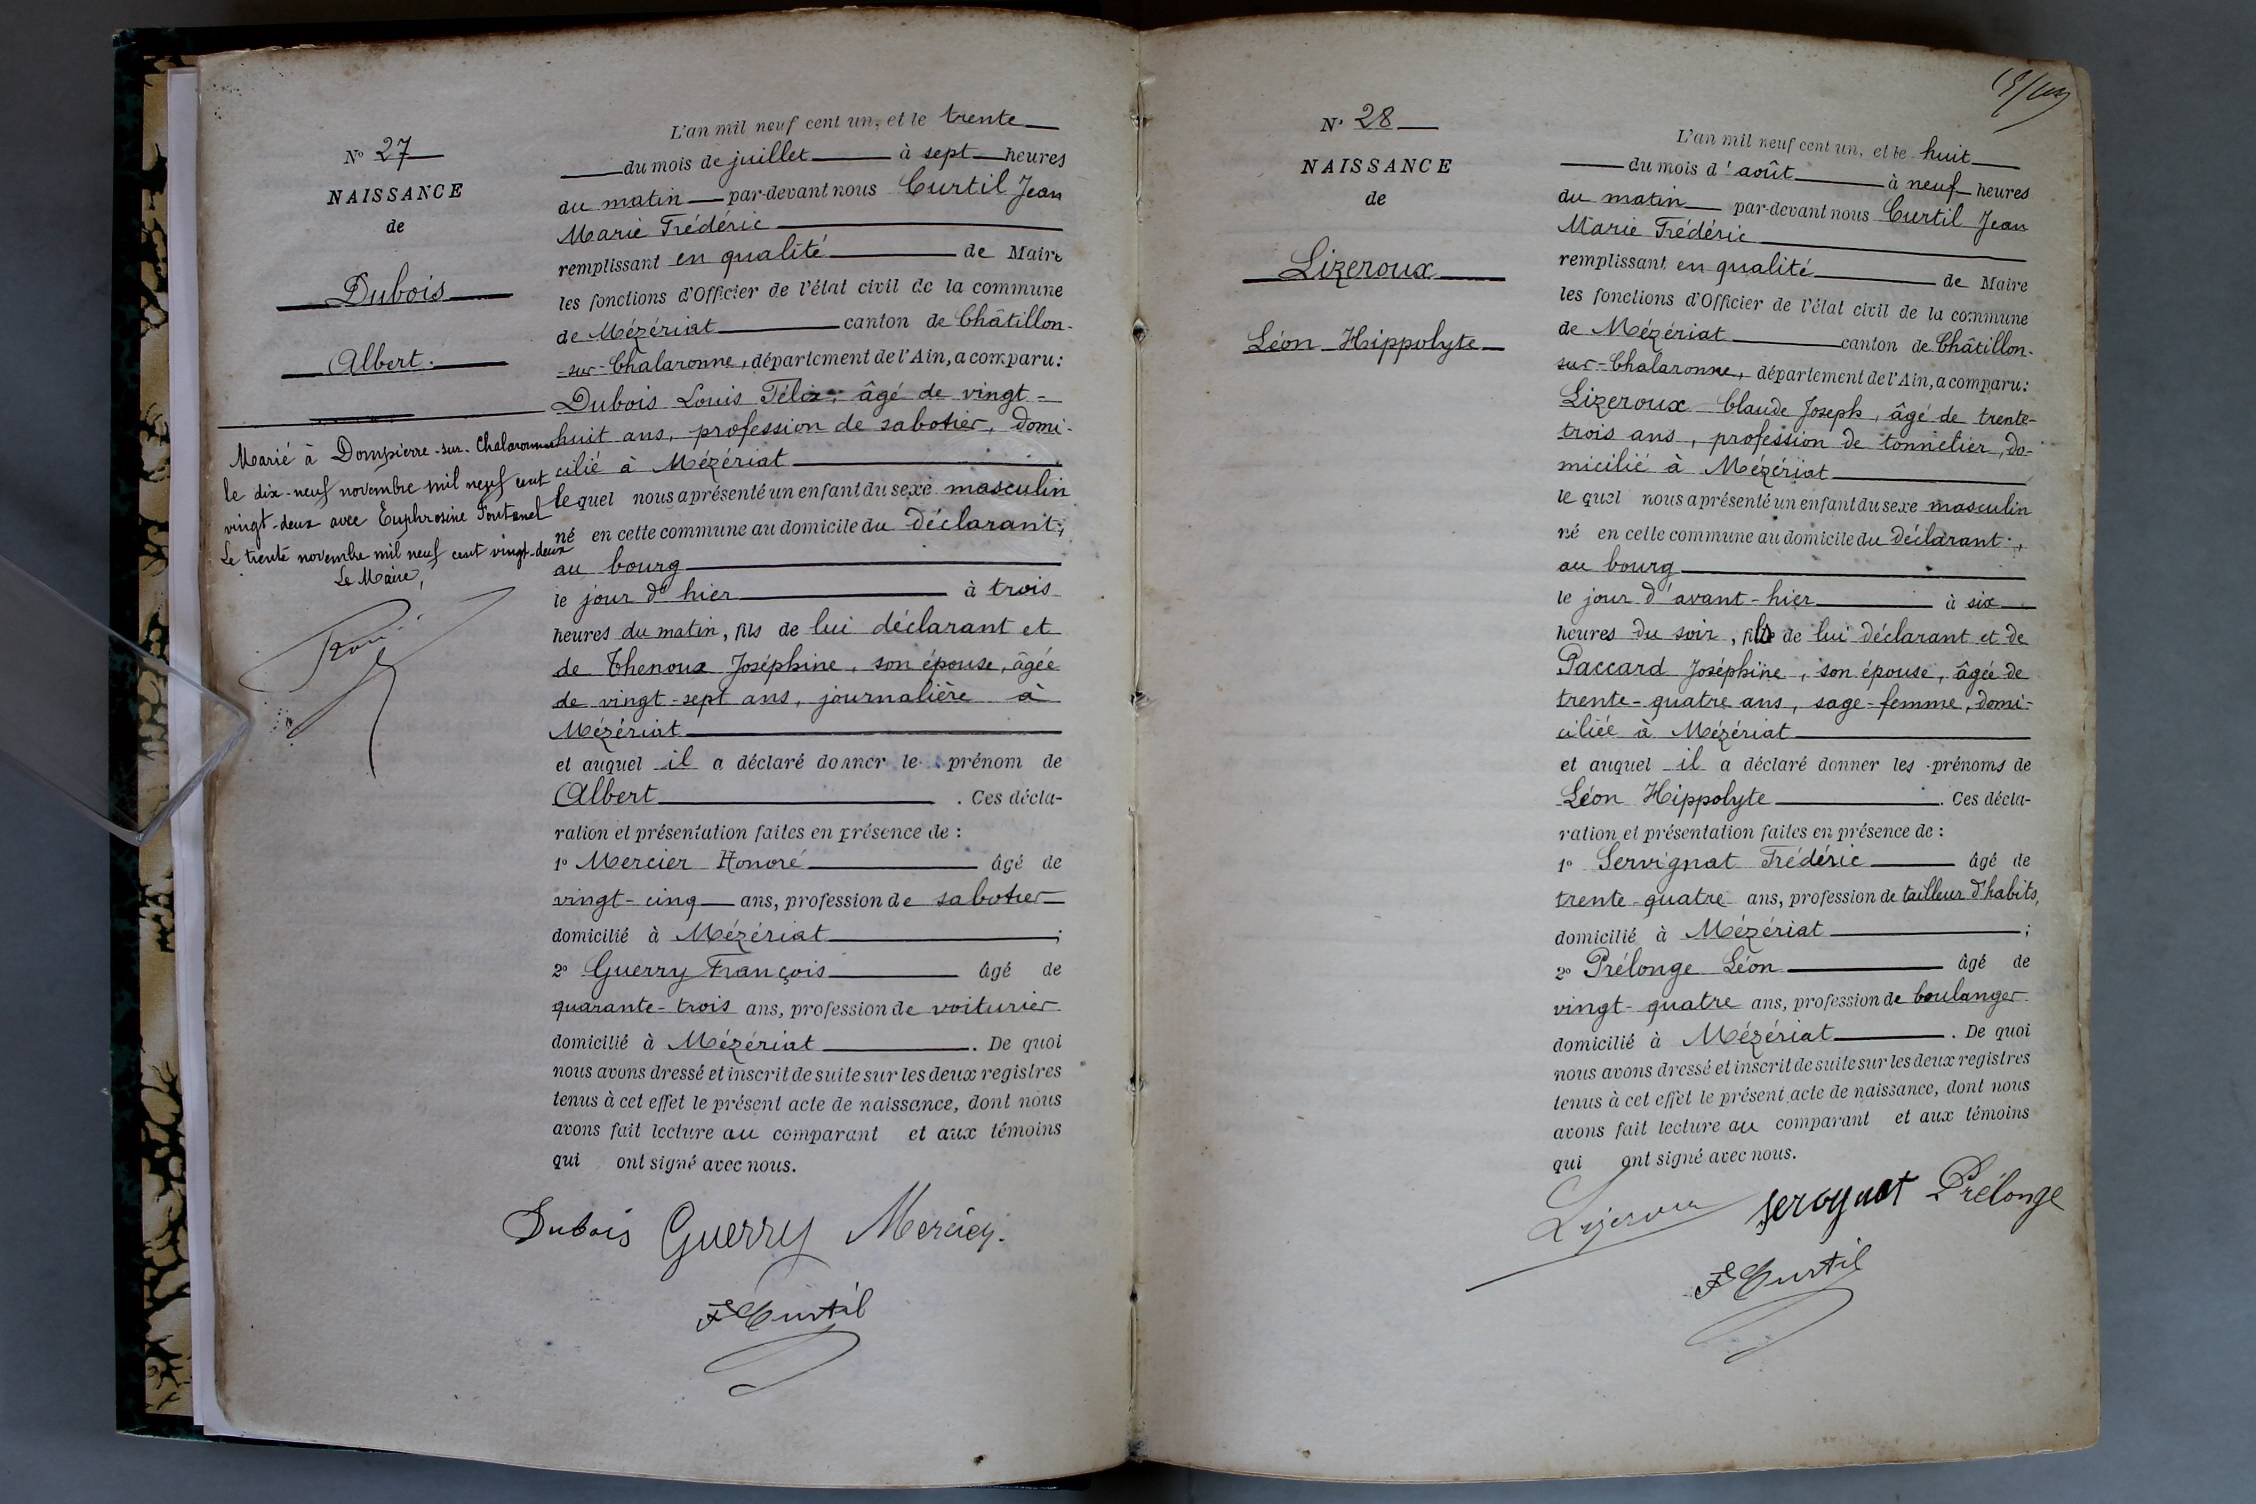 N° 27
NAISSANCE
de
Dubois
Albert.
Marié à Dompierre-sur-Chalaronne
le dix-neuf novembre mil neuf cent
vingt-deux avec Euphrosine Fontanel
Le trente novembre mil neuf cent vingt-deux
Le Maire,
L'an mil neuf cent un, et le trente
du mois de juillet à sept heures
du matin par-devant nous Curtil Jean
Marie Frédéric
remplissant en qualité de Maire
les fonctions d'Officier de l'état civil de la commune
de Mézériat canton de Châtillon-
-sur-Chalaronne, département de l'Ain, a comparu :
Dubois Louis Félix, âgé de vingt-
huit ans, profession de sabotier, domi-
cilié à Mézériat
lequel nous a présenté un enfant du sexe masculin
né en cette commune au domicile du déclarant,
au bourg
le jour d'hier à trois
heures du matin, fils de lui déclarant et
de Thenoux Joséphine, son épouse, âgée
de vingt-sept ans, journalière à
Mézériat
et auquel il a déclaré donner le prénom de
Albert. Ces décla-
ration et présentation faites en présence de :
1° Mercier Honoré âgé de
vingt-cinq ans, profession de sabotier
domicilié à Mézériat ;
2° Guerry François âgé de
quarante-trois ans, profession de voiturier
domicilié à Mézériat. De quoi
nous avons dressé et inscrit de suite sur les deux registres
tenus à cet effet le présent acte de naissance, dont nous
avons fait lecture au comparant et aux témoins
qui ont signé avec nous.
Dubois Guerry Mercier.
F Curtil
N° 28
NAISSANCE
de
Lizeroux
Léon Hippolyte
L'an mil neuf cent un, et le huit
du mois d'août à neuf heures
du matin par-devant nous Curtil Jean
Marie Frédéric
remplissant en qualité de Maire
les fonctions d'Officier de l'état civil de la commune
de Mézériat canton de Châtillon-
sur-Chalaronne, département de l'Ain, a comparu :
Lizeroux Claude Joseph, âgé de trente-
trois ans, profession de tonnelier, do-
micilié à Mézériat
le quel nous a présenté un enfant du sexe masculin
né en cette commune au domicile du déclarant,
au bourg
le jour d'avant-hier à six
heures du soir, fils de lui déclarant et de
Paccard Joséphine, son épouse, âgée de
trente-quatre ans, sage-femme, domi-
ciliée à Mézériat
et auquel il a déclaré donner les prénoms de
Léon Hippolyte. Ces décla-
ration et présentation faites en présence de :
1° Servignat Frédéric âgé de
trente-quatre ans, profession de tailleur d'habits,
domicilié à Mézériat ;
2° Prélonge Léon âgé de
vingt-quatre ans, profession de boulanger
domicilié à Mézériat. De quoi
nous avons dressé et inscrit de suite sur les deux registres
tenus à cet effet le présent acte de naissance, dont nous
avons fait lecture au comparant et aux témoins
qui ont signé avec nous.
Prélonge
F Curtil